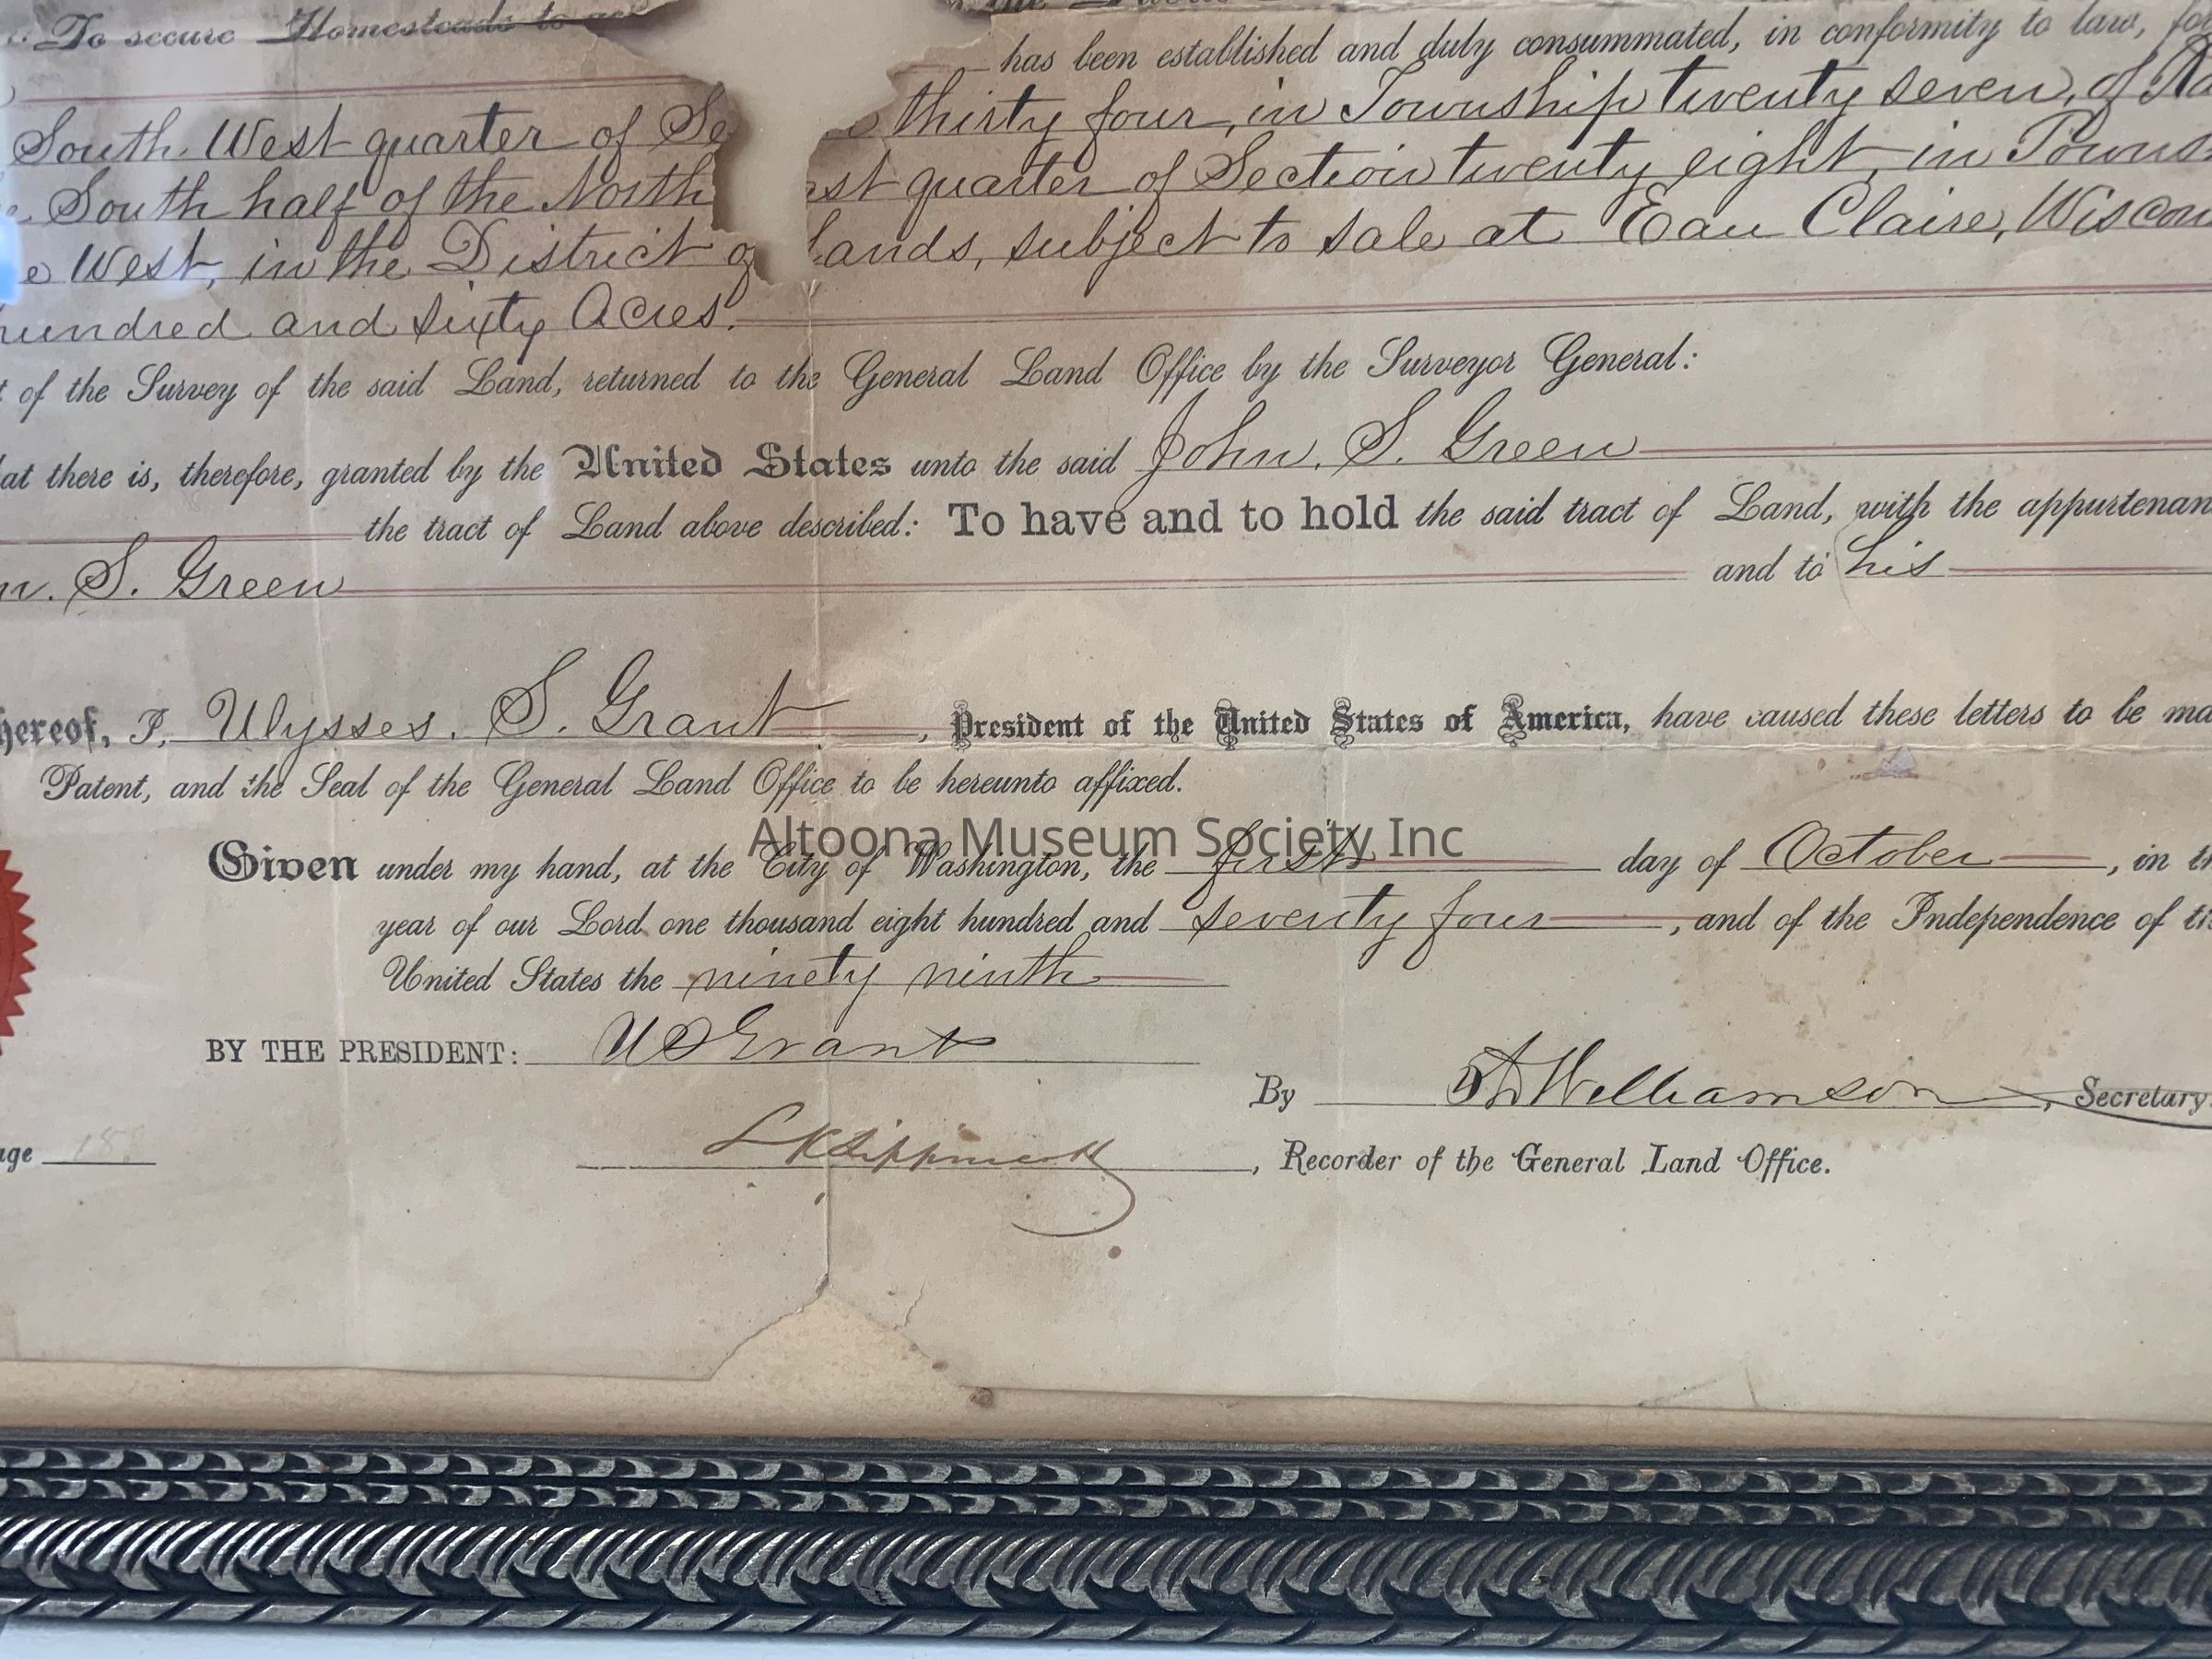 To secure Homesteads to
has been established and duly consummated, in conformity to law, for
South West quarter of Se thirty four, in Township twenty seven, of Ra
South half of the North est quarter of Section twenty eight, in Towns
e West, in the District of lands, subject to sale at Eau Claire, Wiscon
hundred and sixty Acres.
t of the Survey of the said Land, returned to the General Land Office by the Surveyor General:
at there is, therefore, granted by the United States unto the said John. S. Green
the tract of Land above described: To have and to hold the said tract of Land, with the appurtenan
n. S. Green and to his
hereof, I, Ulysses. S. Grant, President of the United States of America, have caused these letters to be ma
Patent, and the Seal of the General Land Office to be hereunto affixed.
Altoona Museum Society Inc
Given under my hand, at the City of Washington, the first day of October, in th
year of our Lord one thousand eight hundred and seventy four, and of the Independence of th
United States the ninety ninth
BY THE PRESIDENT: U S Grant
By D D Williamson, Secretary.
age 188
L K Lippincott, Recorder of the General Land Office.